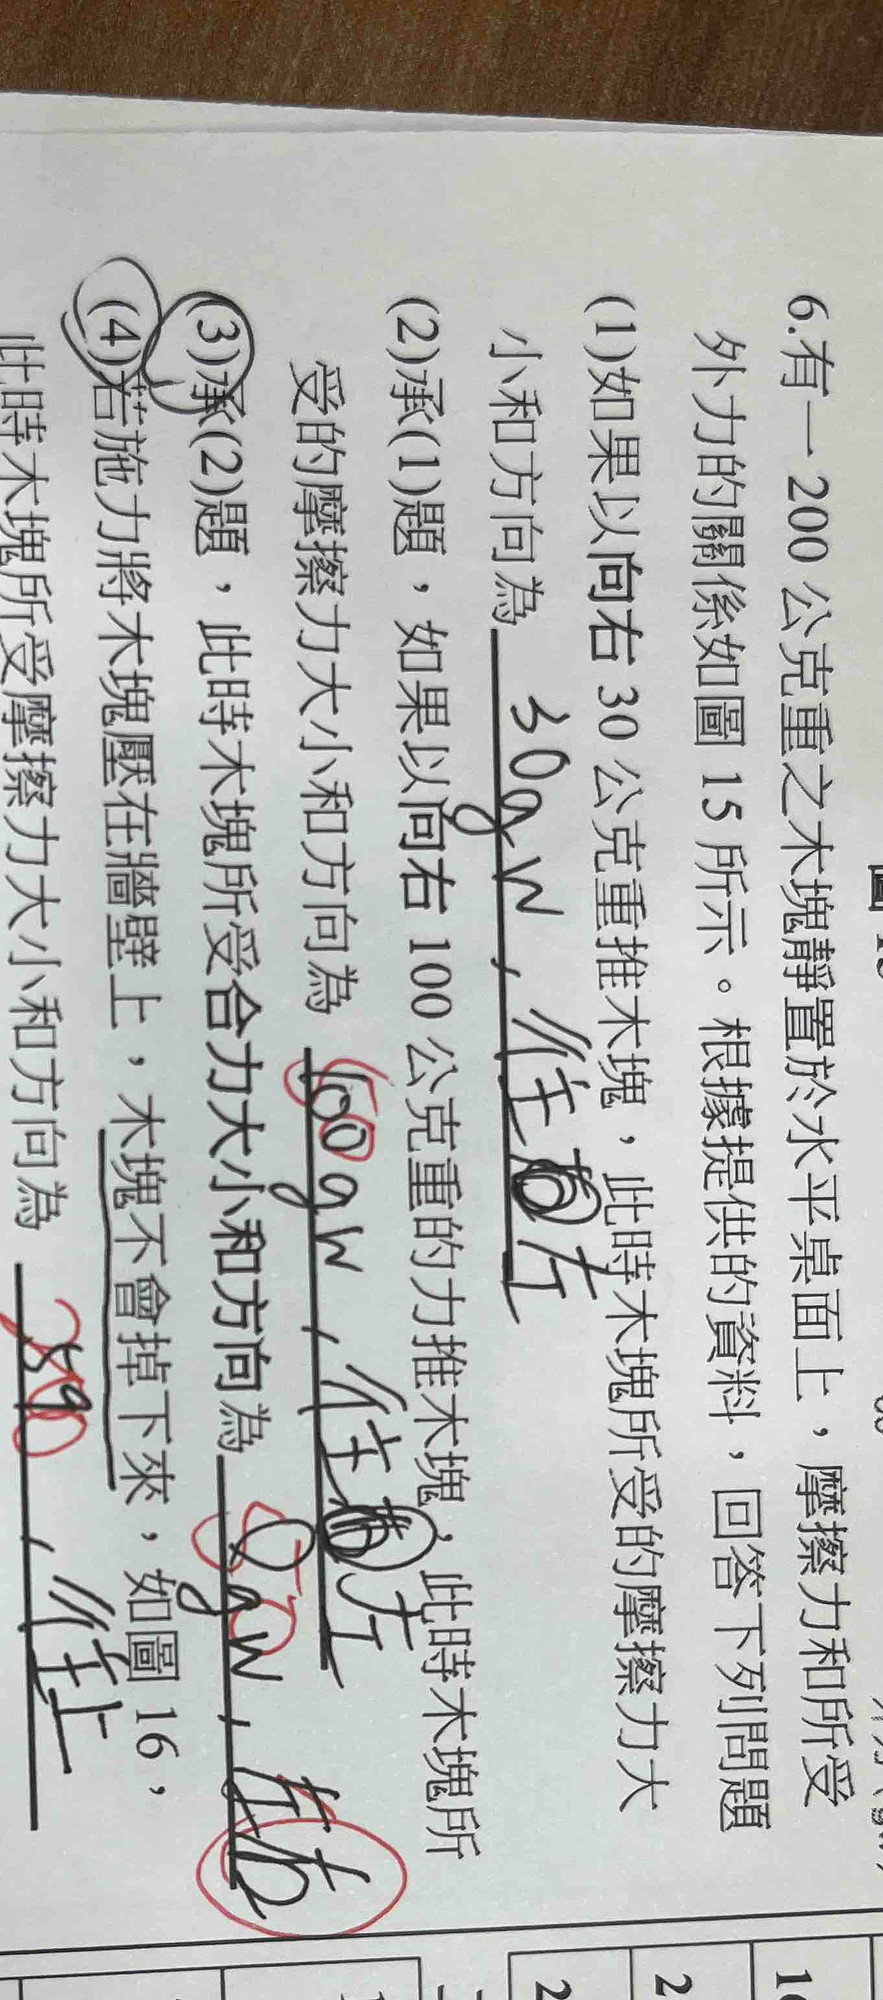 6.有一 200 公克重之木塊靜置於水平桌面上，摩擦力和所受
外力的關係如圖 15 所示。根據提供的資料，回答下列問題
(1)如果以向右 30 公克重推木塊，此時木塊所受的摩擦力大
小和方向為 30gw，往左
(2)承(1)題，如果以向右 100 公克重的力推木塊，此時木塊所
受的摩擦力大小和方向為 gw，往左
(3)承(2)題，此時木塊所受合力大小和方向為 gw，
(4)若施力將木塊壓在牆壁上，木塊不會掉下來，如圖 16，
此時木塊所受摩擦力大小和方向為 ，往上